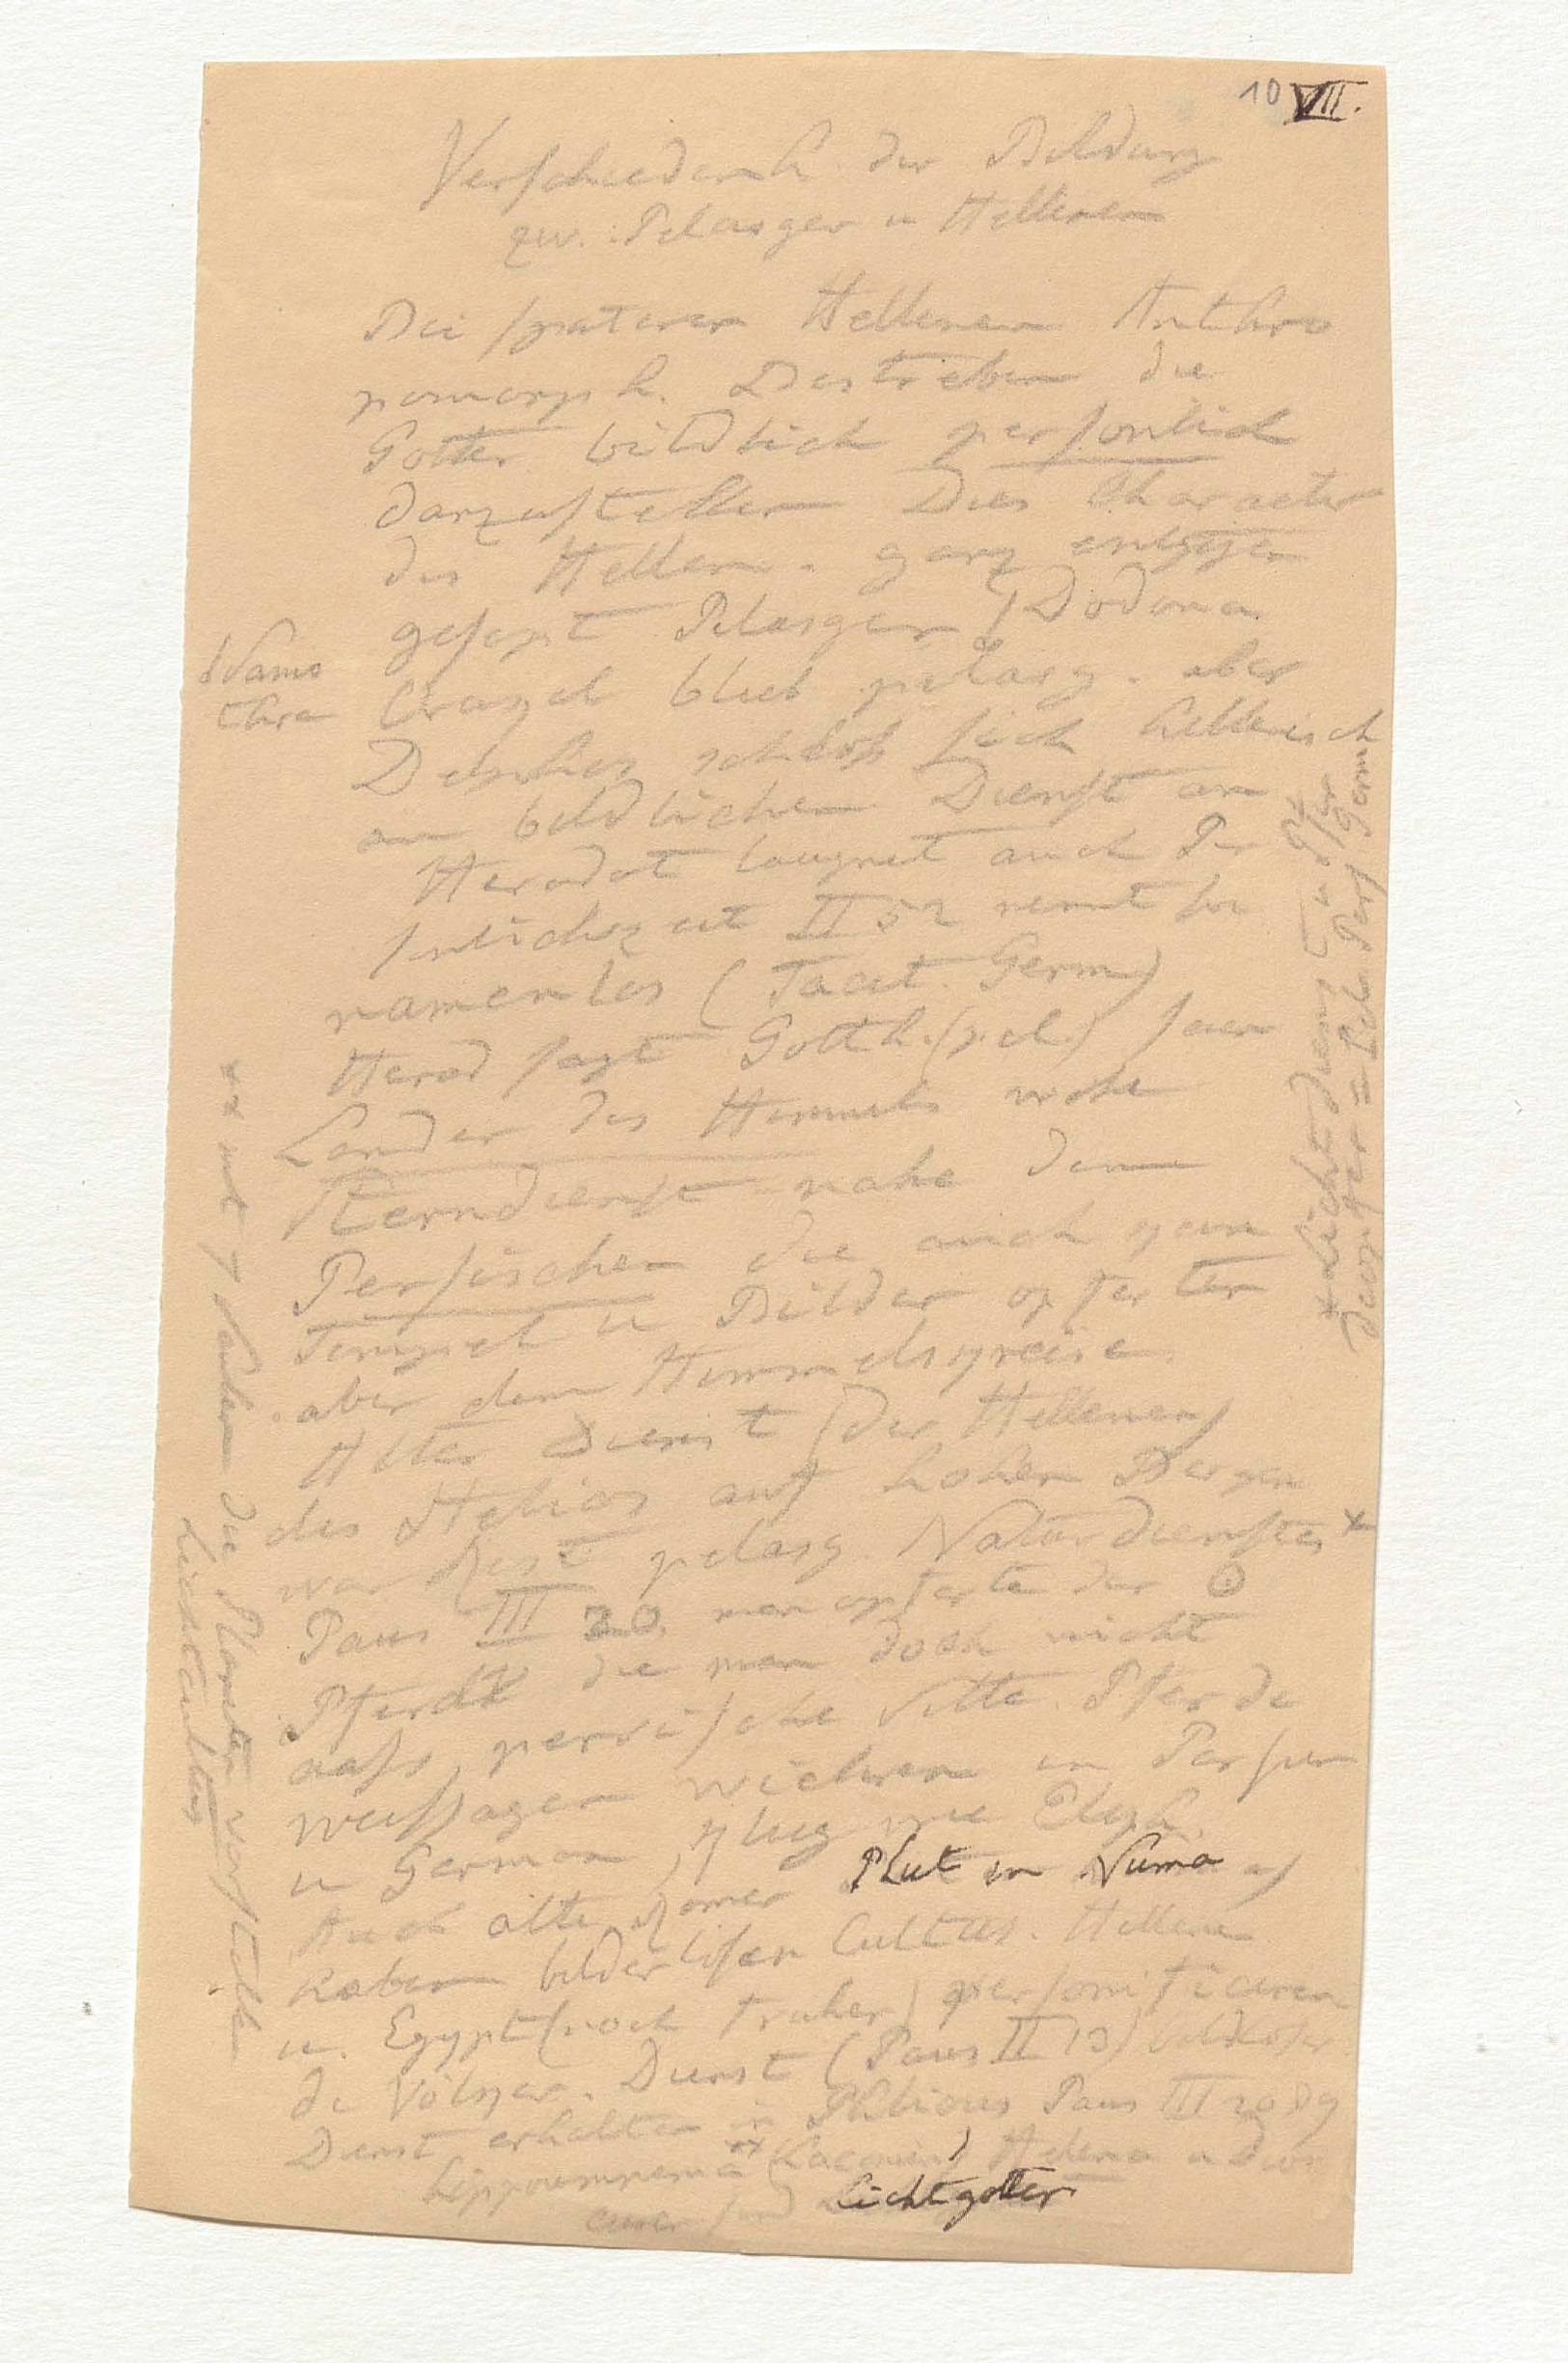 10 VII.
Verschiedenh. der Bildung
zw. Pelasger u Hellenen
Bei spateren Hellenen Anthro
pomorph. Bestreben die
Gotter bildlich persönlich
darzustellen Dies Character
des Hellen. ganz entgegen
gesezt Pelasger (Dodona
Samo
thra
Orakel blieb pelasg. aber
Delphos schloß sich hellenisch
an bildlichen Dienst an
Herodot laugnet auch Per
sonlichkeit II 52 nennt sie
namenlos (Tacit. Germ)
Herod sagt Gotth. (pel.) seien
Lander des Himmels wohl
Sterndienst nahe dem
Persischen die auch kein
Tempel u Bilder opferten
aber dem Himmelskreise
Alter Dienst (der Hellenen)
des Helios auf hohen Bergen
war Rest pelasg. Naturdienstes *
Paus III 20. man opferte der ⊙
Pferde die man doch nicht
aß, persische Sitte. Pferde
weissagen wiehren in Persien
u German klug wie Eleph.
Auch alte Romer Plut in Numa
haben bilderlosen Cultus. Hellenen
u. Egypt (noch fruher) personificiren
die Völker. Dienst (Paus II 13) bildloser
Dienst erhalten in Phlious Paus III 20 § 9
Hippoumnema ** (Laconien) Helena u Dios
curen sind Lichtgotter
* Licht Dienst
Pelasger = Pers Germ
** mit 7 Saulen die Planeten vorstellen
Lichtcultus